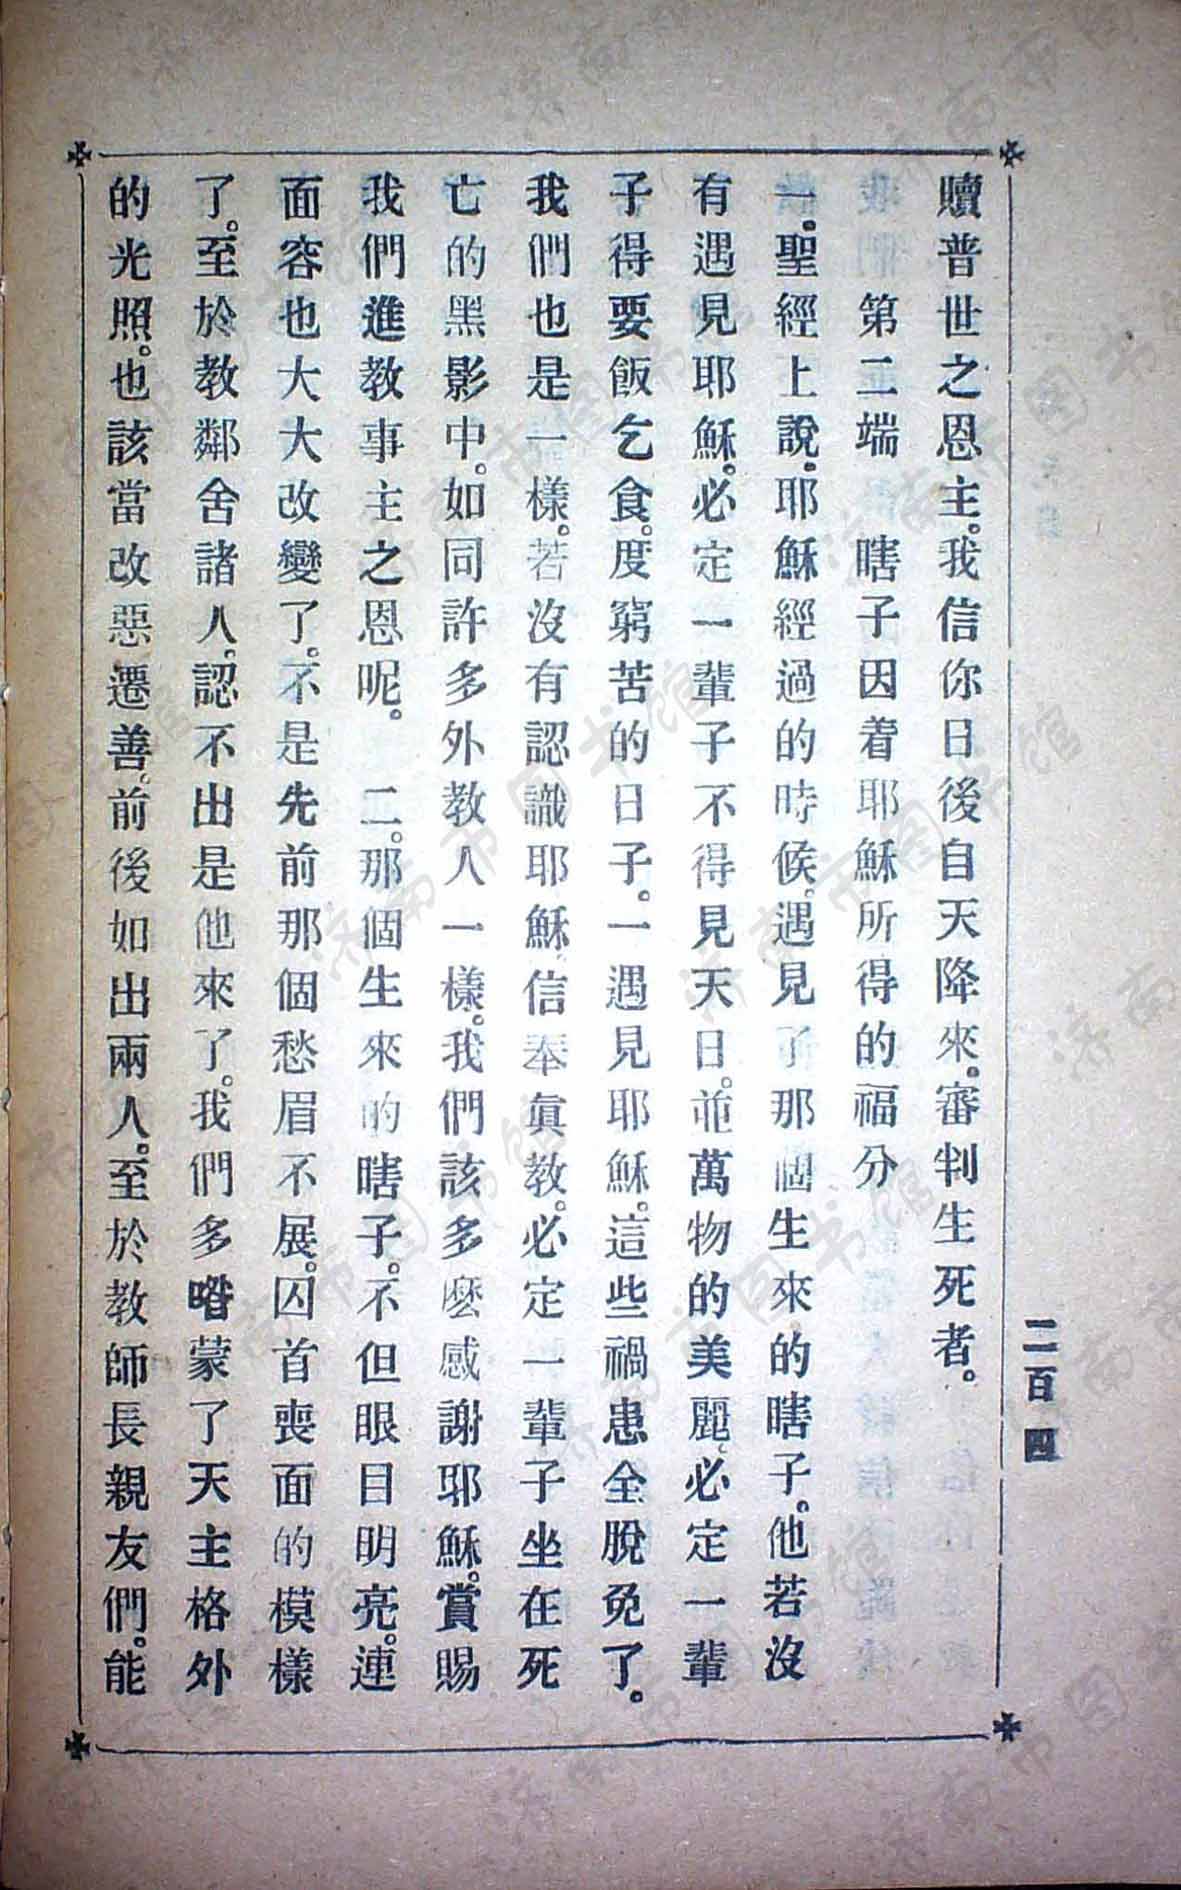 贖普世之恩主。我信你日後自天降來。審判生死者。
第二端　瞎子因着耶穌所得的福分
一。聖經上說。耶穌經過的時候。遇見了那個生來的瞎子。他若沒
有遇見耶穌。必定一輩子不得見天日。並萬物的美麗。必定一輩
子得要飯乞食。度窮苦的日子。一遇見耶穌。這些禍患全脫免了。
我們也是一樣。若沒有認識耶穌。信奉眞教。必定一輩子坐在死
亡的黑影中。如同許多外教人一樣。我們該多麽感謝耶穌。賞賜
我們進教事主之恩呢。　二。那個生來的瞎子。不但眼目明亮。連
面容也大大改變了。不是先前那個愁眉不展。囚首喪面的模樣
了。至於教鄰舍諸人。認不出是他來了。我們多喒蒙了天主格外
的光照。也該當改惡遷善。前後如出兩人。至於教師長親友們。能
二百四
济南市图书馆